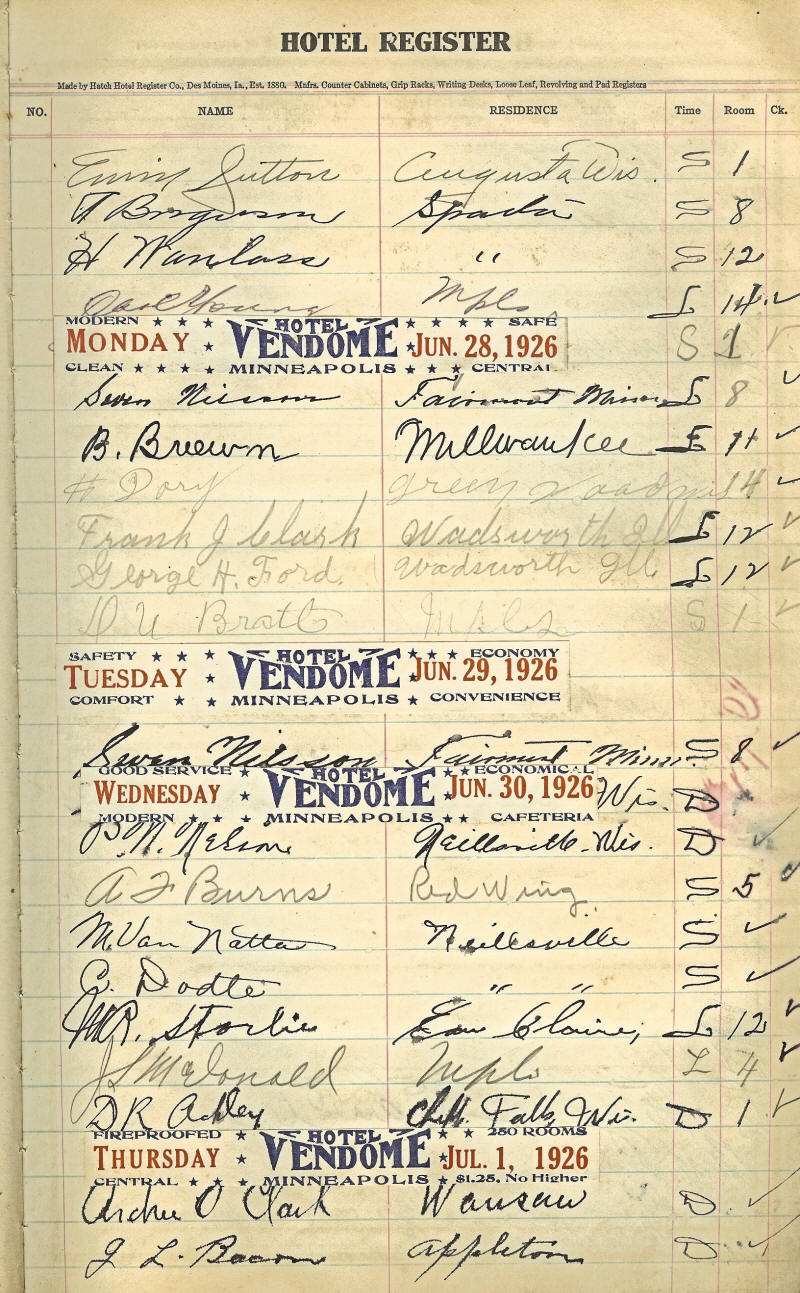 HOTEL REGISTER
Made by Hatch Hotel Register Co., Des Moines, Ia., Est. 1880. Mnfrs. Counter Cabinets, Grip Racks, Writing Desks, Loose Leaf, Revolving and Pad Registers
NO. NAME RESIDENCE Time Room Ck.
Sutton Augusta Wis. S 1
Sparta S 8
H Wanlass " S 12
Carl Young Mpls L 14. ✓
MODERN ★ ★ ★ HOTEL ★ ★ ★ ★ SAFE
MONDAY ★ VENDOME ★ JUN. 28, 1926 S 1 ✓
CLEAN ★ ★ ★ ★ MINNEAPOLIS ★ ★ CENTRAL
Swen Nilsson Fairmont Minn L 8 ✓
B. Brewn Millwaukee 11 ✓
H Dory Green 14 ✓
Frank J Clark Wadsworth Ill L 12 ✓
George H. Ford. Wadsworth Ill. L 12 ✓
Bratt Mpls S 1 ✓
SAFETY ★ ★ ★ HOTEL ★ ★ ★ ECONOMY
TUESDAY ★ VENDOME ★ JUN. 29, 1926
COMFORT ★ ★ MINNEAPOLIS ★ CONVENIENCE
Swen Nilsson Fairmont Minn. S 8 ✓
GOOD SERVICE ★ HOTEL ★ ECONOMICAL
WEDNESDAY ★ VENDOME ★ JUN. 30, 1926 Wis. D
MODERN ★ ★ MINNEAPOLIS ★ ★ CAFETERIA
P. N. Nelson Neillsville. Wis. D ✓
A F Burns Red Wing. S 5 ✓
M. Van Natta Neillsville S ✓
C. Dodte " " S ✓
M R. Storlie Eau Claire, L 12 ✓
J S McDonald Mpls L 4 ✓
D R Ackley Chip. Falls, Wis. D 1 ✓
FIREPROOFED ★ HOTEL ★ ★ 250 ROOMS
THURSDAY ★ VENDOME ★ JUL. 1, 1926
CENTRAL ★ ★ MINNEAPOLIS ★ $1.25, No Higher
Archie O Clark Wausau D ✓
J L. Bacon Appleton D ✓